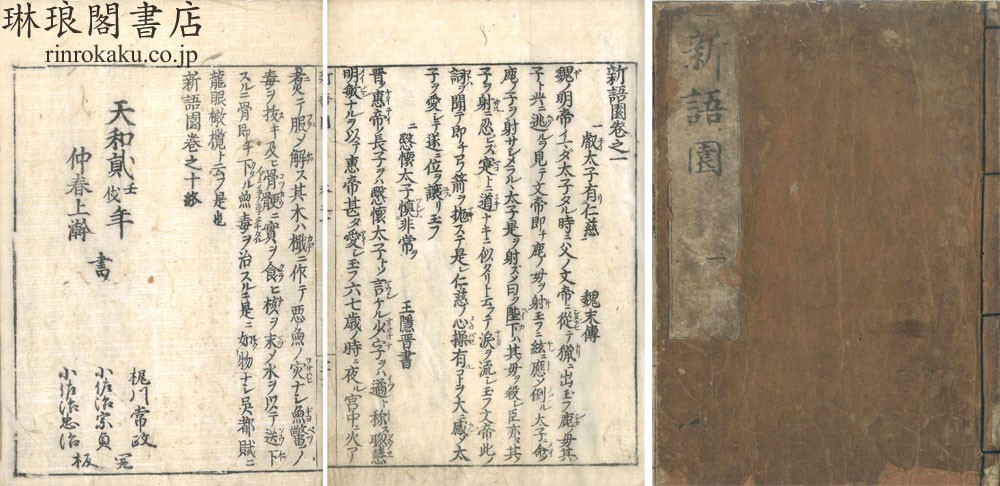 琳琅閣書店
rinrokaku.co.jp
新語園 一
新語園巻之一
一 叡太子有仁慈 魏末傳
魏ノ明帝イマダ太子タル時ニ父ノ文帝ニ從テ獵ニ出玉フ鹿毋其
子ト共ニ逃ルヲ見テ文帝即チ鹿ノ毋ヲ射玉フニ絃ニ應ノ倒ル太子ニ命ノ
鹿ノ子ヲ射サシメラル太子是ヲ射ズメ曰ク陛下ハ其毋ヲ殺シ臣亦其
子ヲ射ニ忍ビズ寔ト道ナキニ似タリト云テ涙ヲ流シ玉フ文帝此ノ
詞ヲ聞テ即チ弓箭ヲ抛ステ是レ仁慈ノ心操有コトヲ大ニ感ノ太
子ヲ愛シテ遂ニ位ヲ讓リ玉フ
二 愍懷太子愼非常 王隱晉書
晉ノ惠帝ノ長子ヲハ愍懷太子ト言ケル少字ヲハ遹ト称ス聰慧
明敏ナルヲ以テ惠帝甚タ愛シ玉フ六七歳ノ時ニ夜ル宮中ニ火アリ
煮テ服メ解ス其木ハ檝ニ作テ悪魚ノ灾ナシ魚鼈ノ
毒ヲ抜キ及ヒ骨骾ニ實ヲ食ヒ核ヲ末メ水ヲ以テ送下
スルニ骨即チ下ル魚毒ヲ治スルニ是ニ如物ナシ呉都賦ニ
龍眼橄欖ト云フ是也
新語園巻之十終
天和貳壬戌年
仲春上澣 書
梶川常政
小佐治宗貞
小佐治忠治 板